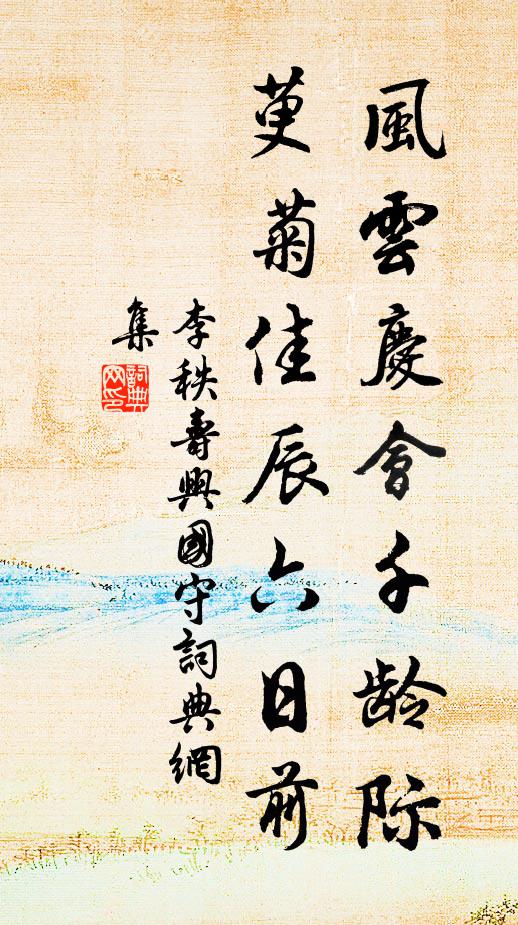 風雲慶會千齡際
萸菊佳辰六日前
李秩壽興國守詞典網
集
詞典
网印